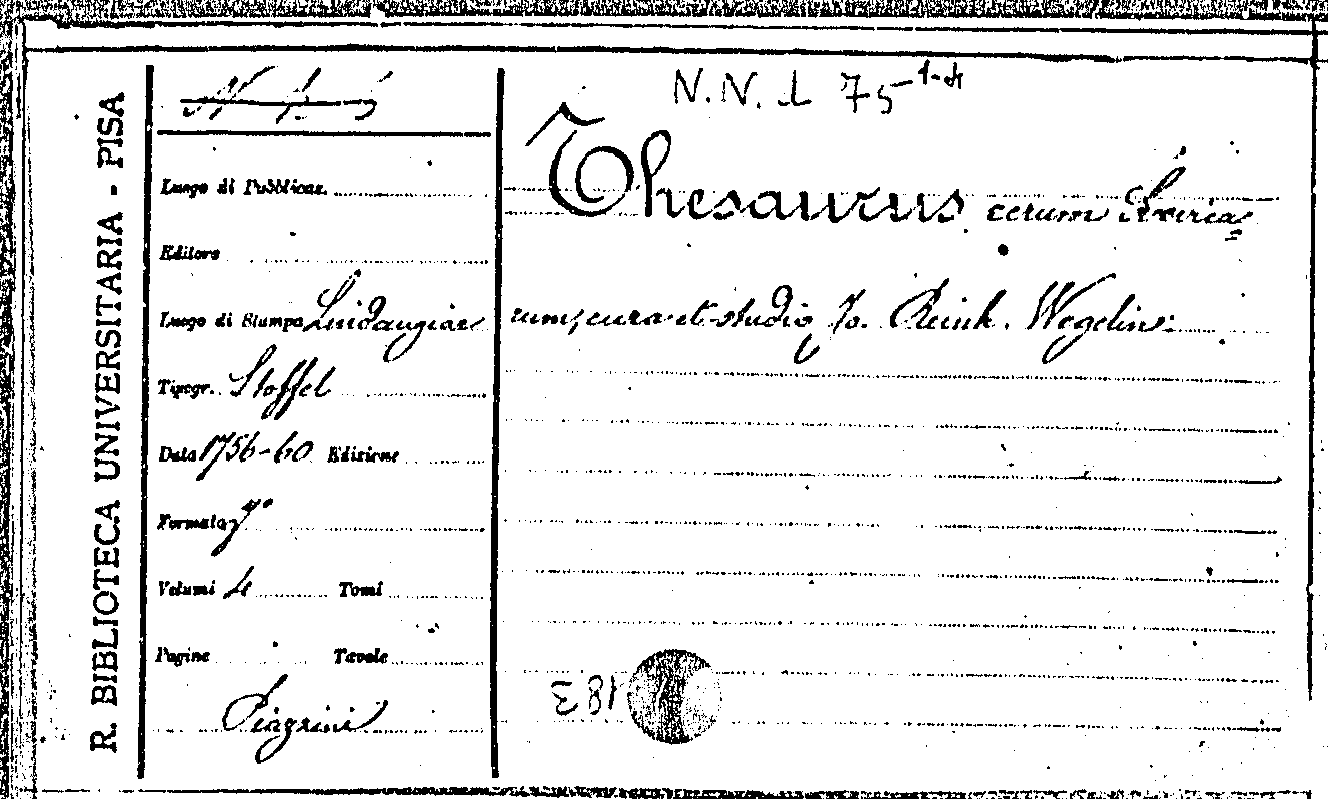 R. BIBLIOTECA UNIVERSITARIA - PISA
N. N. 1 75 1-4
Thesaurus rerum Svevica=
rum, cura et studio Jo. Reinh. Wegelin:
Luogo di Pubblicaz.
Editore
Luogo di Stampa Lindaugiae
Tipogr. Stoffel
Data 1756-60 Edizione
Formato fº
Volumi 4 Tomi
Pagine Tavole
Piagrini
183